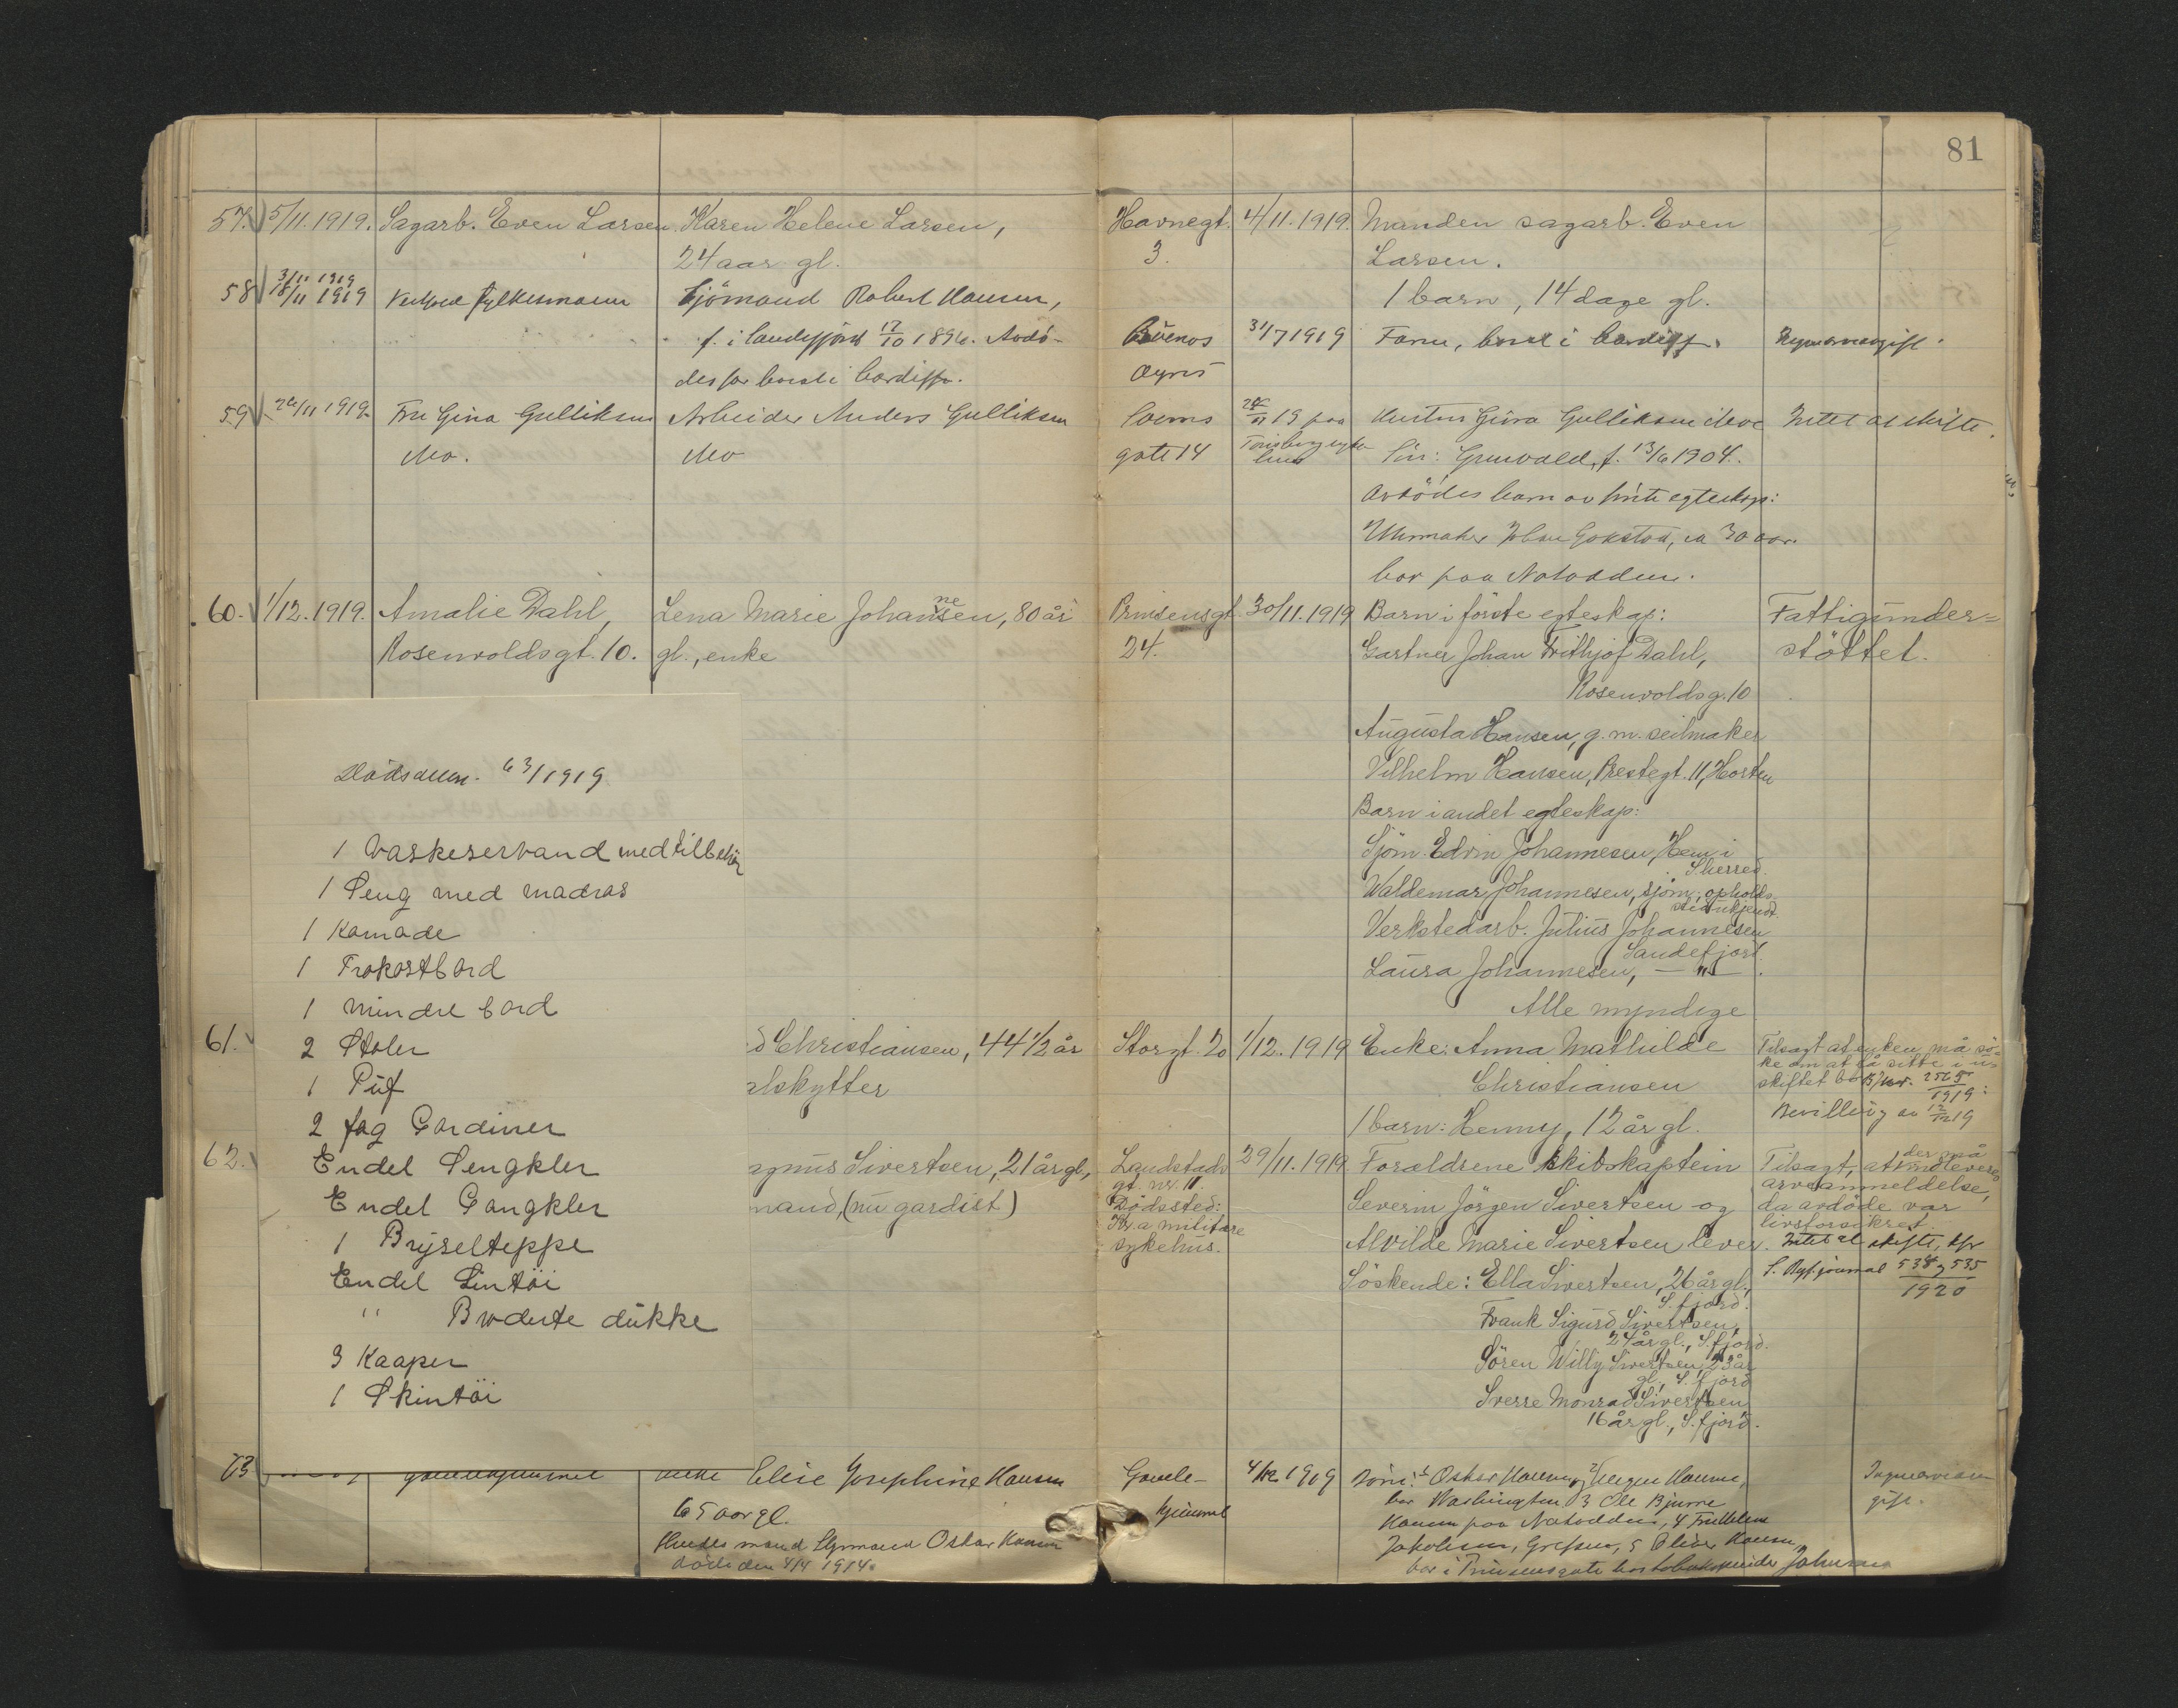 81
57. 5/11.1919. Sagarb. Even Larsen Karen Helene Larsen, Havnegt. 4/11.1919. Manden sagarb. Even
24 aar gl. 3. Larsen.
1 barn, 14 dage gl.
58 3/11 1919
18/11 1919 Fylkesmann Sjömand Robert Hansen,
f. i Sandefjord 17/10 1896. Avdö- Buenos 31/7 1919 Farm, bosat i Cardiff.
des far bosat i Cardiff. Ayres
59 26/11 1919. Fru Gina Gulliksen Arbeider Anders Gulliksen Sverres 19 paa Gulliksen Moe Intet at skifte.
Mo. Mo gate 14 Tönsberg syke- Sön: Grunvald, f. 13/6 1904.
hus
Avdödes barn av förste egteskap:
Uhrmaker Johan Gokstad, ca 30 aar.
bor paa Notodden.
60. 1/12.1919. Amalie Dahl, Lena Marie Johannesen, 80 år Prinsensgt. 30/11.1919 Barn i förste egteskap: Fattigunder=
Rosenvoldsgt. 10. gl., enke 24. Gartner Johan Frithjof Dahl, stöttet.
Rosenvoldsg. 10
Augusta Hansen, g. m. seilmaker
Vilhelm Hansen, Prestegt. 11, Horten
Barn i andet egteskap:
Sjöm. Edvin Johannesen, Hem i
S.herred.
Waldemar Johannesen, sjöm, opholds-
sted ukjendt.
Verkstedarb. Julius Johannesen
Sandefjord.
Laura Johannesen, — " —
Alle myndige
Dödsanm. 63/1919
1 Vaskeservand med tilbehör
1 Seng med madras
1 Komode
1 Frokostbord
1 mindre bord
2 Stoler
1 Puf
2 fag Gardiner
Endel Sengkler
Endel Gangkler
1 Brysselteppe
Endel Lintöi
" Broderte dukke
3 Kaaper
1 Skintöi
61. d Christiansen, 44 1/2 år Storgt. 20 1/12.1919 Enke: Anna Mathilde Tilsagt at enken må sö-
ke om at få sitte i u-
alskytter Christiansen skiftet bo. B/nr. 2565/1919:
1 barn: Henny, 12 år gl. Bevilling av 12/12 19
62. agnus Sivertsen, 21 år gl., Landstads 29/11.1919 Forældrene skibskaptein Tilsagt, at der må indleveres
gt. nr. 11. arveanmeldelse,
mand, (nu gardist) Dödssted: Severin Jörgen Sivertsen og da avdöde var
Kr.a militære livsforsikret.
sykehus. Alvilde Marie Sivertsen lever. Intet at skifte, kfr
Söskende: Ella Sivertsen, 26 år gl., S. Rgt. journal 534 og 535
S.fjord. 1920
Frank Sigurd Sivertsen,
24 år gl., S.fjord.
Sören Willy Sivertsen, 23 år
gl., S.fjord
Sverre Monrad Sivertsen
16 år gl., S.fjord.
63 Enke Elise Josephine Hansen Gamle- 4/12 1919 Börn: 1 Oskar Hansen, 2 Jörgen Hansen,
65 aar gl. kjemmel bor Washington 3 Ole Bjarne
Hansen paa Notodden, 4 Fru
Hendes mand Styrmand Oskar Hansen Jakobsen, Grefsen, 5 Hansen,
döde den 4/4 1914. bor i Prinsensgate hos Johnsen